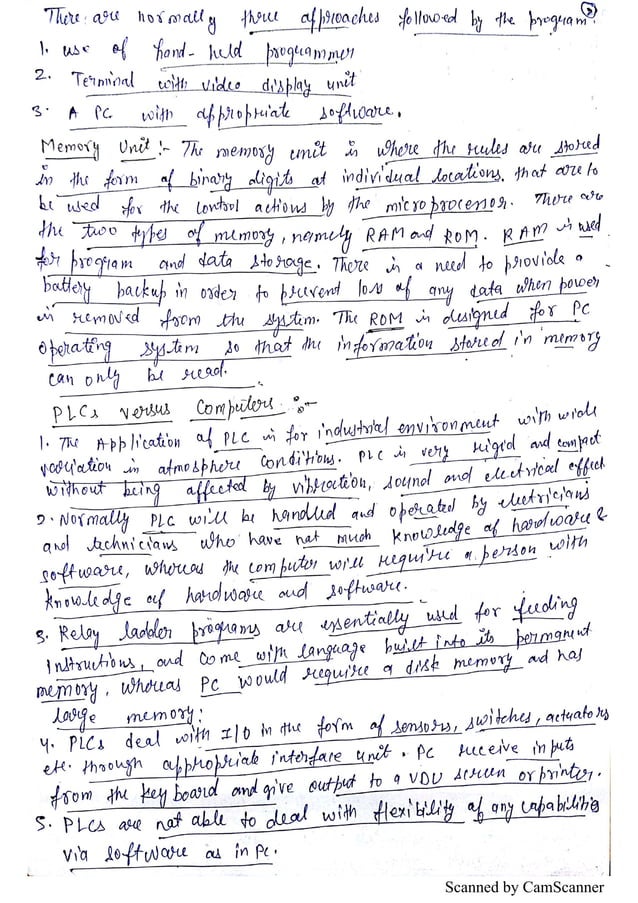 There are normally three approaches followed by the program.
3
1. use of hand-held programmer
2. Terminal with video display unit
3. A PC with appropriate software.
Memory Unit :- The memory unit is where the rules are stored
in the form of binary digits at individual locations. that are to
be used for the control actions by the microprocessor. There are
the two types of memory, namely RAM and ROM. RAM is used
for program and data storage. There is a need to provide a
battery backup in order to prevent loss of any data when power
is removed from the system. The ROM is designed for PC
operating system so that the information stored in memory
can only be read.
PLCs versus Computers :-
1. The Application of PLC is for industrial environment with wide
variation in atmosphere conditions. PLC is very rigid and compact
without being affected by vibration, sound and electrical effect
2. Normally PLC will be handled and operated by electricians
and technicians who have not much knowledge of hardware &
software, whereas the computer will require a person with
knowledge of hardware and software.
3. Relay ladder programs are essentially used for feeding
instructions, and come with language built into its permanent
memory, whereas PC would require a disk memory and has
large memory:
4. PLCs deal with I/O in the form of sensors, switches, actuators
etc. through appropriate interface unit. PC receive inputs
from the key board and give output to a VDU screen or printer.
5. PLCs are not able to deal with flexibility of any capabilities
via software as in PC.
Scanned by CamScanner